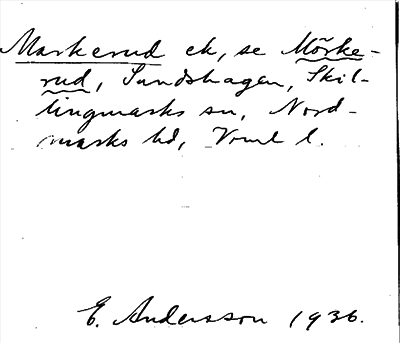 Markerud ek, se Mörke-
rud, Sundshagen, Skil-
lingmarks sn, Nord-
marks hd, Vrml l.
E. Andersson 1936.